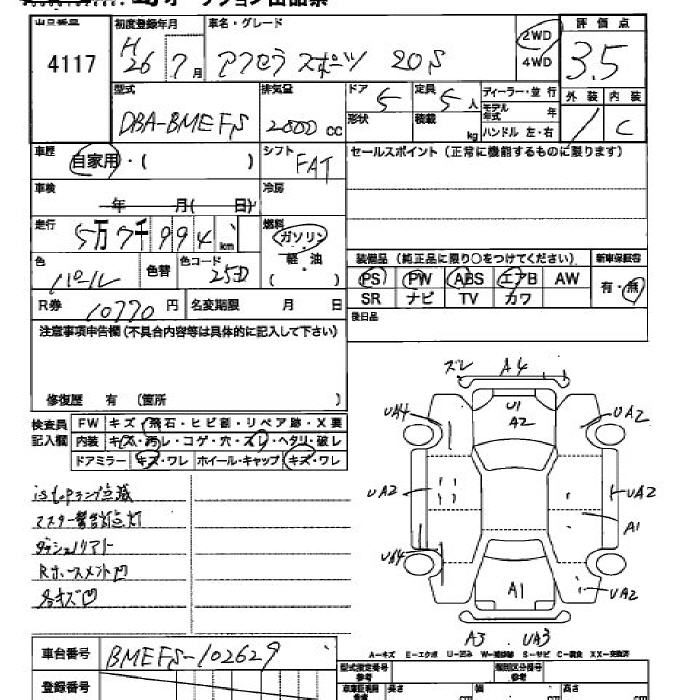 出品番号 初度登録年月 車名・グレード 評価点
4117 H26 7月 アクセラ スポーツ 20S 2WD 4WD 3.5
型式 排気量 ドア 定員 ディーラー・並行 外装 内装
DBA-BMEFS 2000cc 5 5人 モデル年式 年 C
形状 積載 kg ハンドル 左・右
車歴 自家用・( ) シフト FAT セールスポイント(正常に機能するものに限ります)
車検 年 月( 日) 冷房
走行 5万7千994km 燃料 ガソリン・軽油 ( )
色 パール 色替 色コード 25D
装備品(純正品に限り○をつけてください) 新車保証書
PS PW ABS エアB AW 有・無
SR ナビ TV カワ
R券 10770円 名変期限 月 日 後日品
注意事項申告欄(不具合内容等は具体的に記入して下さい)
修復歴 有 (箇所 )
検査員記入欄 FW キズ・飛石・ヒビ割・リペア跡・X要
内装 キズ・汚レ・コゲ・穴・スレ・ヘタリ・破レ
ドアミラー キズ・ワレ ホイール・キャップ キズ・ワレ
ズレ A4
U1
A2
UA4 UA2
UA2 UA2
A1
UA2
A1
A3 UA3
istopランプ点滅
マスター警告灯点灯
ダッシュリアト
Rホースメント凹
各キズ凹
A-キズ E-エクボ U-凹み W-補修跡 S-サビ C-腐食 XX-交換済
車台番号 BMEFS-102629
型式指定番号 参考 類別区分番号 参考
登録番号 長さ cm 幅 cm 高さ cm